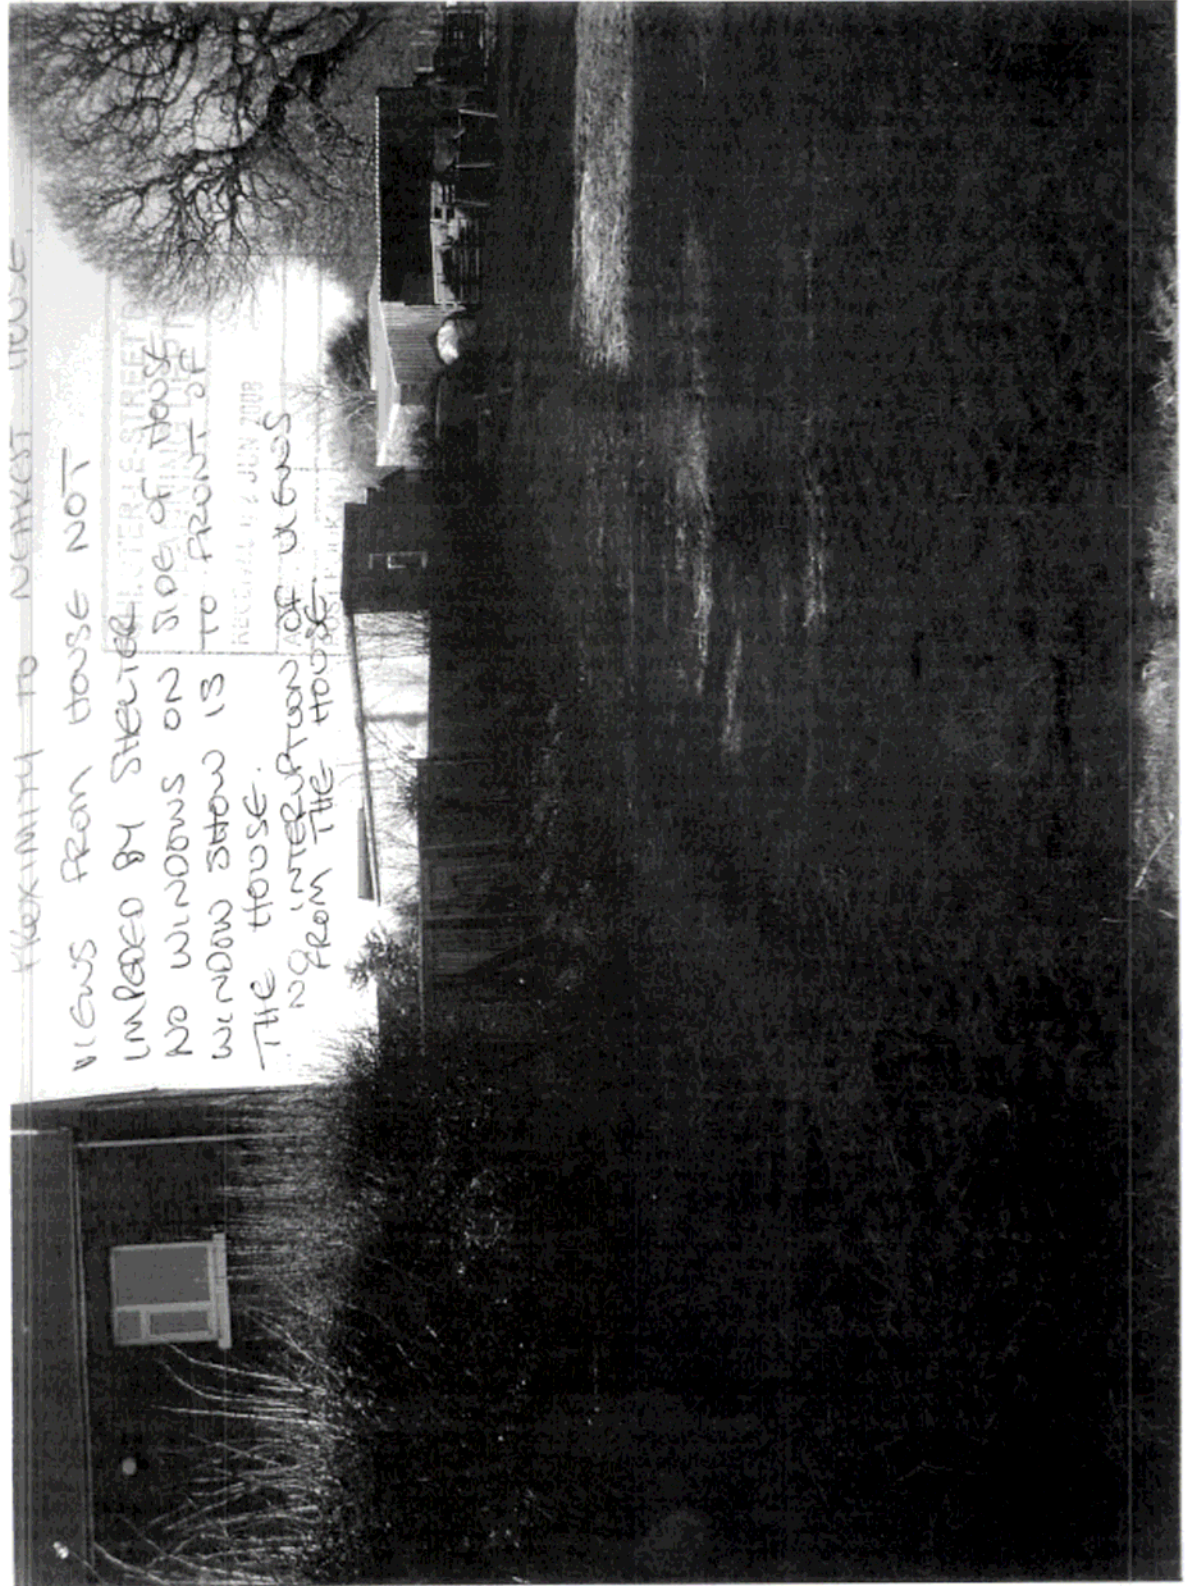 PROXIMITY TO NEAREST HOUSE.
VIEWS FROM HOUSE NOT
IMPEDED BY SHELTER
NO WINDOWS ON SIDE OF HOUSE
WINDOW SHOW IS TO FRONT OF
THE HOUSE.
NO INTERUPTION OF VIEWS
FROM THE HOUSE.
CHESTER-LE-STREET
RECEIVED JUN 2008